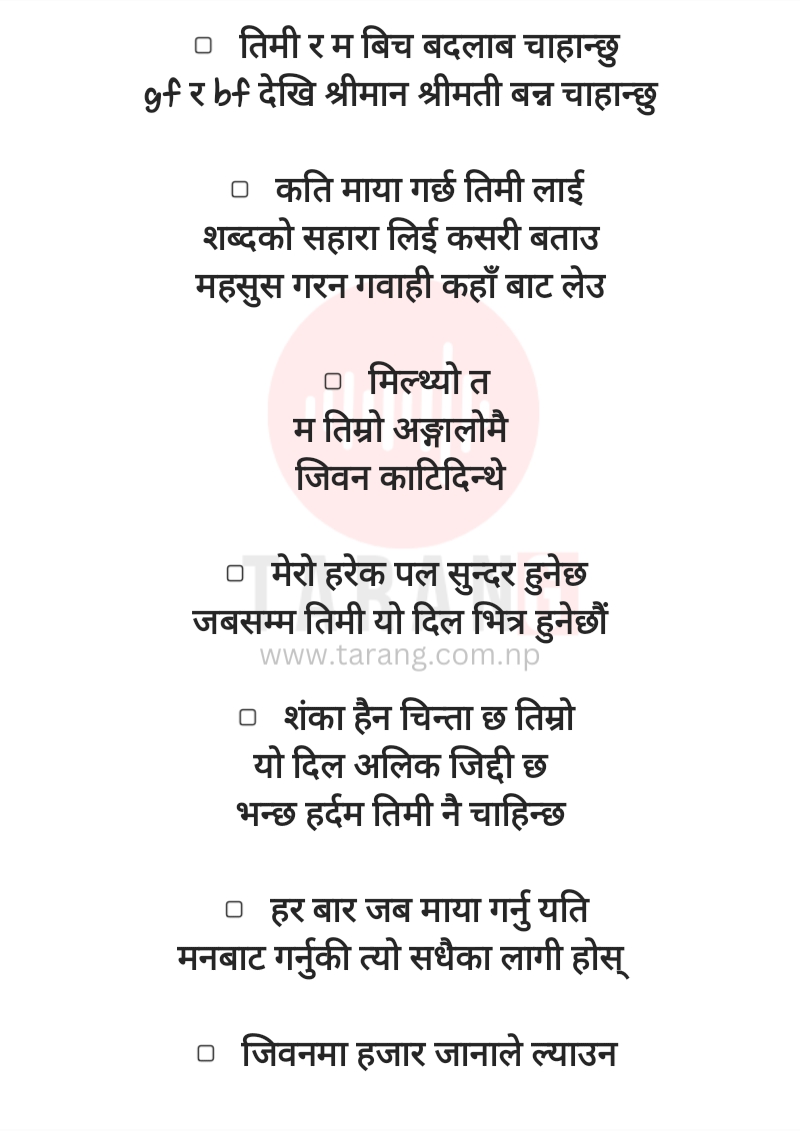 ▢ तिमी र म बिच बदलाब चाहान्छु
gf र bf देखि श्रीमान श्रीमती बन्न चाहान्छु
▢ कति माया गर्छ तिमी लाई
शब्दको सहारा लिई कसरी बताउ
महसुस गरन गवाही कहाँ बाट लेउ
▢ मिल्थ्यो त
म तिम्रो अङ्गालोमै
जिवन काटिदिन्थे
▢ मेरो हरेक पल सुन्दर हुनेछ
जबसम्म तिमी यो दिल भित्र हुनेछौं
TARANG
www.tarang.com.np
▢ शंका हैन चिन्ता छ तिम्रो
यो दिल अलिक जिद्दी छ
भन्छ हर्दम तिमी नै चाहिन्छ
▢ हर बार जब माया गर्नु यति
मनबाट गर्नुकी त्यो सधैका लागी होस्
▢ जिवनमा हजार जानाले ल्याउन